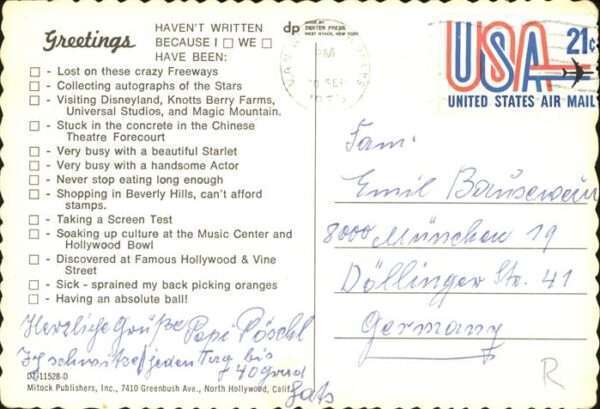 Greetings
HAVEN'T WRITTEN
BECAUSE I □ WE □
HAVE BEEN:
□ - Lost on these crazy Freeways
□ - Collecting autographs of the Stars
□ - Visiting Disneyland, Knotts Berry Farms,
Universal Studios, and Magic Mountain.
□ - Stuck in the concrete in the Chinese
Theatre Forecourt
□ - Very busy with a beautiful Starlet
□ - Very busy with a handsome Actor
□ - Never stop eating long enough
□ - Shopping in Beverly Hills, can't afford
stamps.
□ - Taking a Screen Test
□ - Soaking up culture at the Music Center and
Hollywood Bowl
□ - Discovered at Famous Hollywood & Vine
Street
□ - Sick - sprained my back picking oranges
□ - Having an absolute ball!
Herzliche Grüße Papi Pöschl
Ich schwitze jeden Tag bis
40 grad
DT-11528-D
Mitock Publishers, Inc., 7410 Greenbush Ave., North Hollywood, Calif.
dp
DEXTER PRESS
WEST NYACK, NEW YORK
PM
SEP
USA 21c
UNITED STATES AIR MAIL
Fam.
Emil Bauserwein
8000 München 19
Döllinger Str. 41
Germany
R